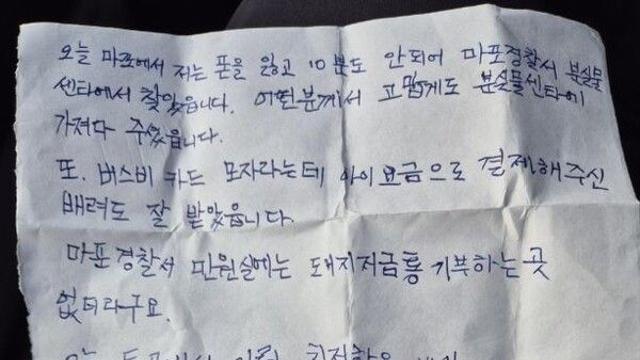 오늘 마포에서 저는 폰을 잃고 10분도 안되어 마포경찰서 분실물
센타에서 찾았읍니다. 어떤분께서 고맙게도 분실물센타에
가져다 주셨읍니다.
또. 버스비 카드 모자라는데 아이요금으로 결제해주신
배려도 잘 받았읍니다.
마포경찰서 민원실에는 돼지저금통 기부하는 곳
없더라구요.